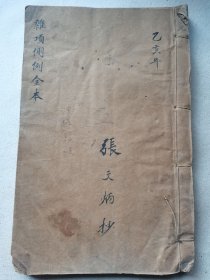 乙亥年
張文炳抄
雜項侧例全本